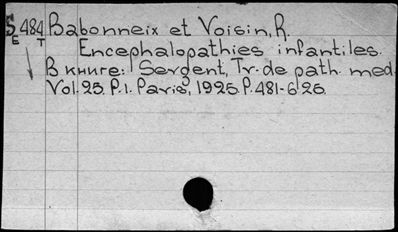 S 484 Babonneix et Voisin, R.
E T Encephalopathies infantiles.
В книге: Sergent, Tr. de path. med.
Vol. 25. P. 1. Paris, 1925. P. 481-626.